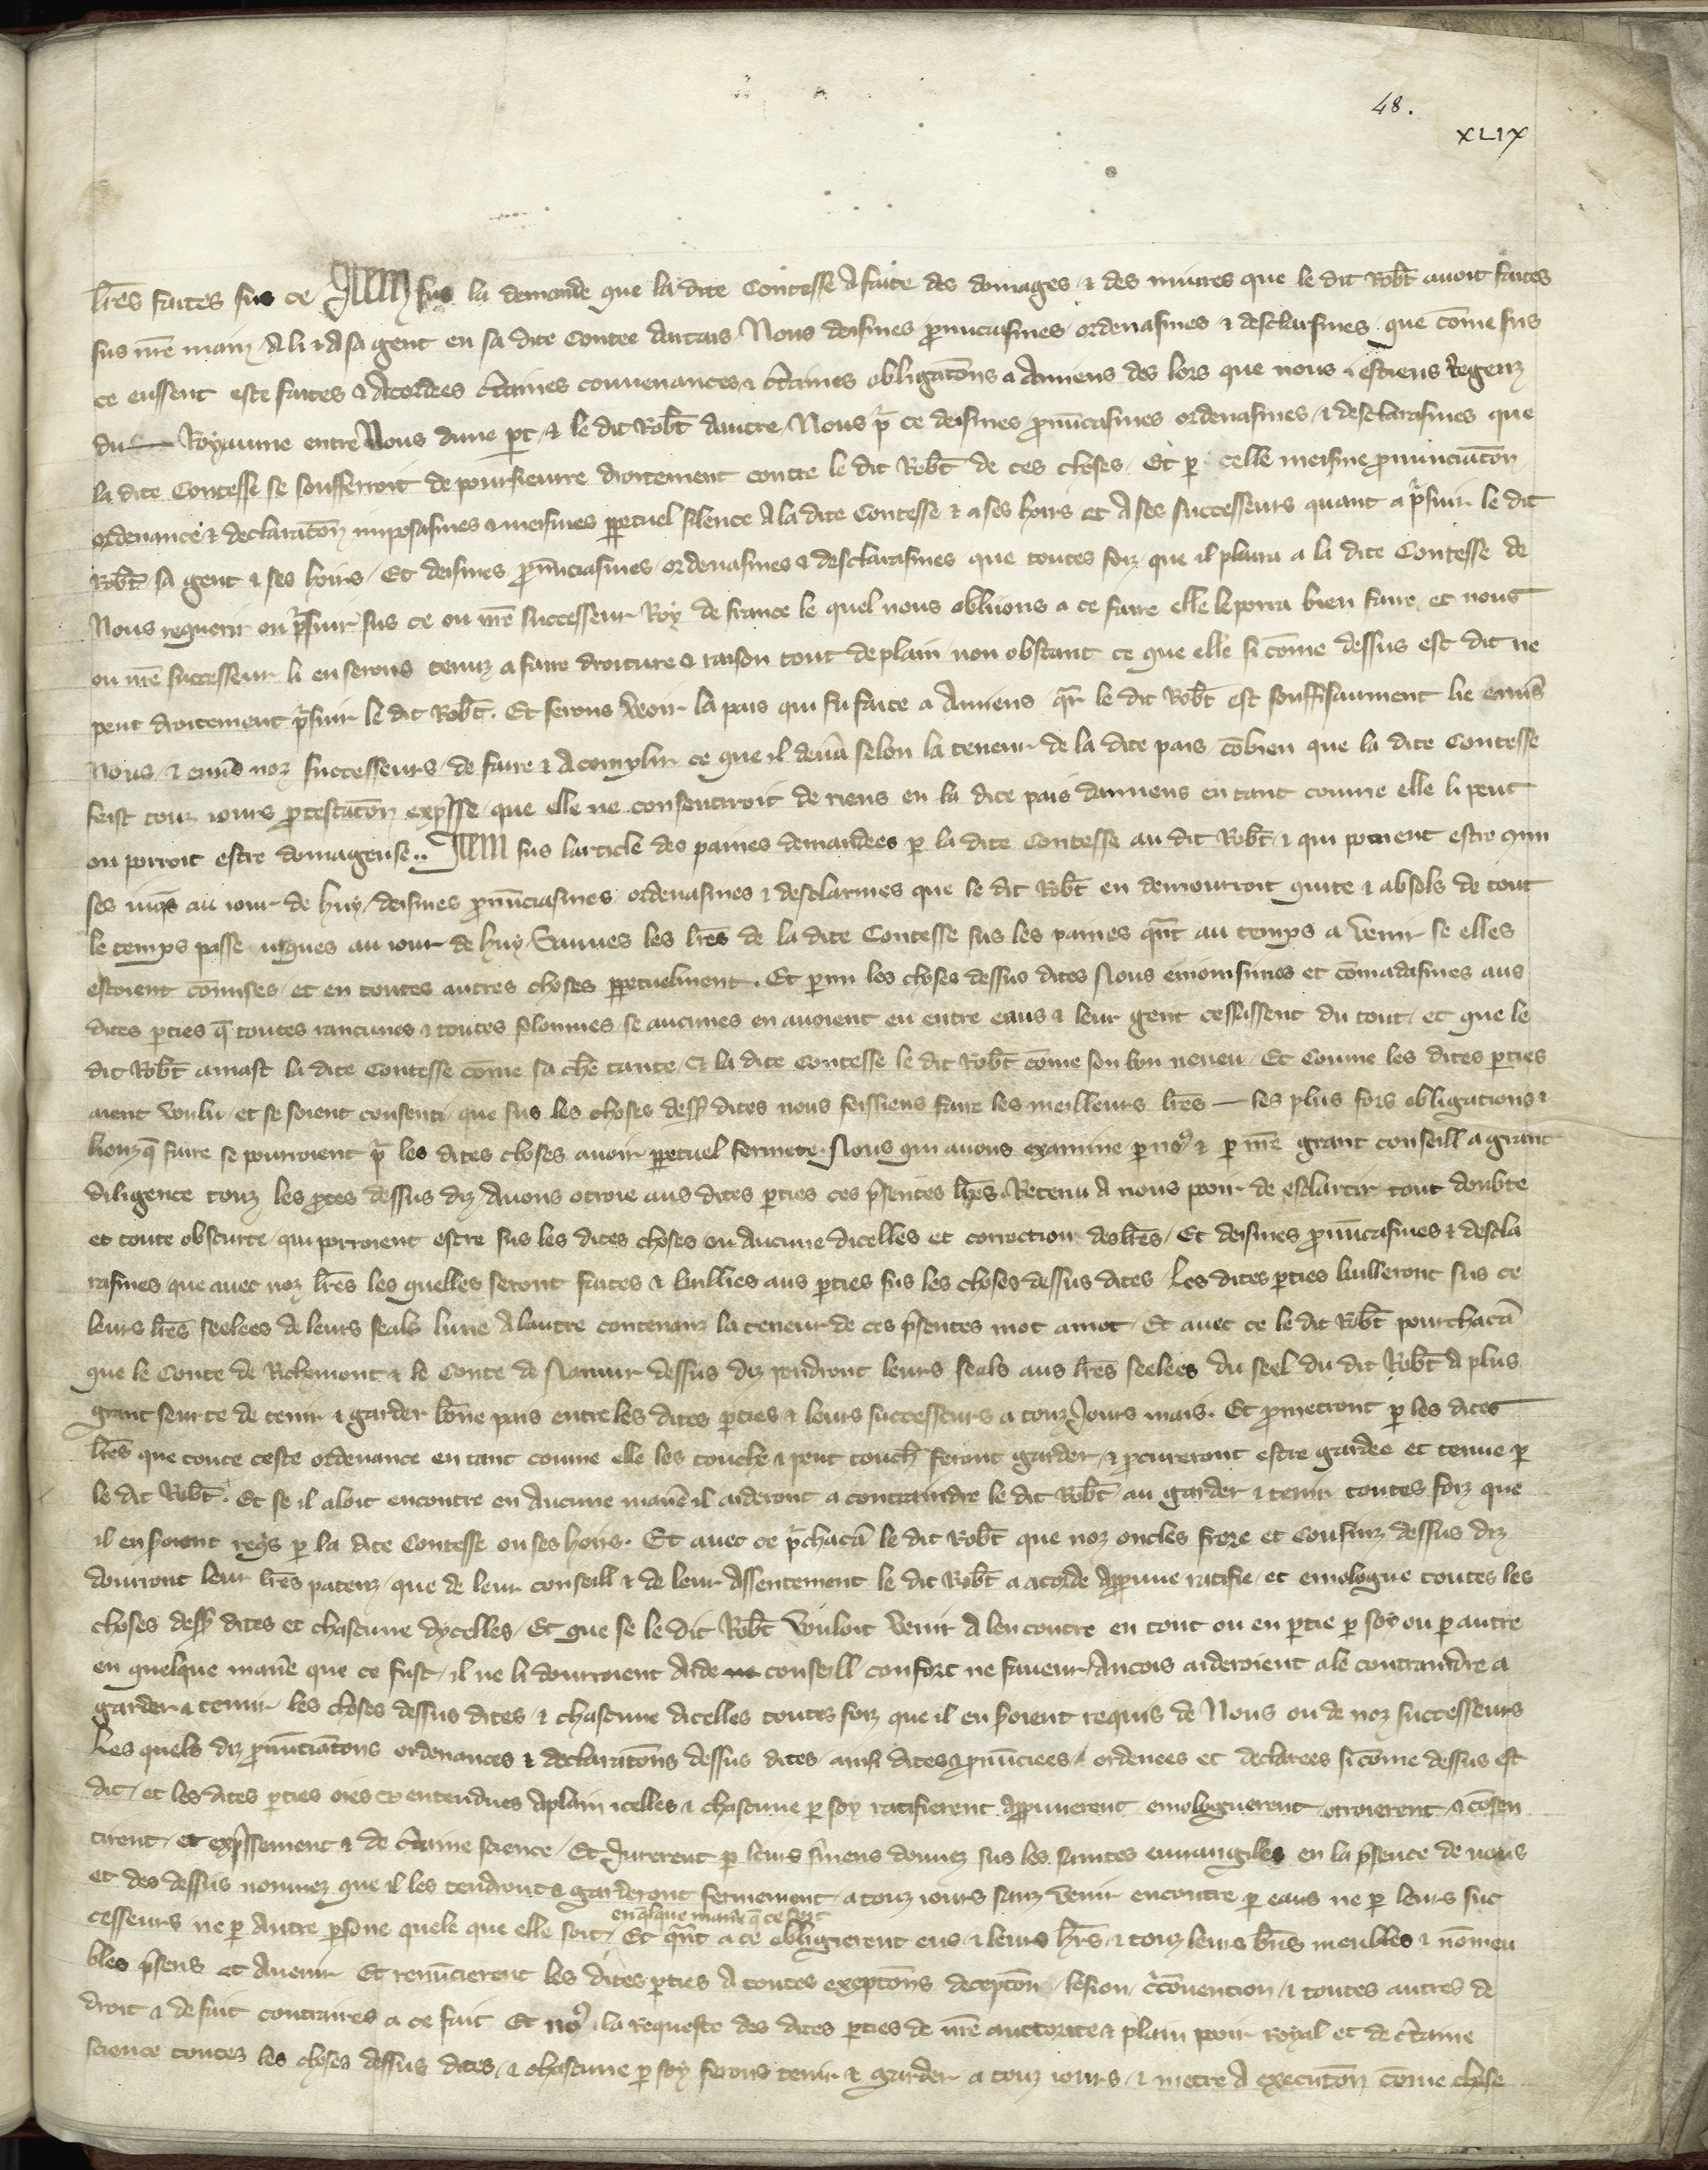 48.
XLIX
lr̃es faites sus ce Item sus la demande que la dite Contesse A faite des domages & des iniures que le dit Rob̃t auoit faites
sus nr̃e main A li & A sa gent en sa dite Contee dartais Nous deismes pronũciasmes ordenasmes & desclairsmes que cõme sus
ce eussent este faites & Acordees c̃taines conuenances & c̃taines obligac̃ons a Amiens des lors que nous estiens Regenz
du Royaume entre Nous dune p̲t & le dit Rob̃t dautre Nous p̃ ce deismes pronũciasmes ordenasmes & desclarasmes que
la dite Contesse se soufferroit de poursieurre droitement contre le dit Rob̃t de ces choses Et p̲ celle meisme pronunciac̃on
ordenance & declarac̃on imposasmes & meismes p̲petuel silence A la dite Contesse & a ses hoirs et A ses successeurs quant a p̃suir le dit
Rob̃t sa gent & ses hoirs Et deismes pronũciasmes ordenasmes & desclarasmes que toutes foiz que il plaira a la dite Contesse de
Nous requerir ou p̃suir sus ce ou nr̃e successeur Roy de france le quel nous oblijons a ce faire elle le porra bien faire et nous
ou nr̃e successeur li en serons tenuz a faire droiture & raison tout de plain non obstant ce que elle si cõme dessus est dit ne
peut droitement p̃suir le dit Rob̃t. Et ferons veoir la pais qui fu faite a Amiens q̃r le dit Rob̃t est souffisaument lie enu̾s
Nous & enu̾s noz successeurs de faire & Acomplir ce que il deura selon la teneur de la dite pais cõbien que la dite Contesse
feist touz iours p̲testac̃on exp̃sse que elle ne consentiroit de riens en la dite pais damiens en tant comme elle li peut
ou porroit estre domageuse .. Item sus larticle des paines demandees p̲ la dite Contesse au dit Rob̃t & qui pouient estre cõmi
ses iusq̃s au iour de huy deismes pronũciasmes ordenasmes & desclarmes que le dit Rob̃t en demourroit quite & absols de tout
le temps passe iusques au iour de huy Sauues les lr̃es de la dite Contesse sus les paines q̃nt au temps a venir se elles
estoient cõmises et en toutes autres choses p̲petuelment. Et parmi les choses dessus dites Nous enioinsimes et cõmãdasmes aus
dites p̲ties q̃ toutes rancunes & toutes felonnies se aucunes en auoient eu entre eaus & leur gent cessassent du tout et que le
dit Rob̃t amast la dite Contesse cõme sa ch̾e tante & la dite Contesse le dit Rob̃t cõme son bon neueu Et Comme les dites p̲ties
aient voulu et se soient consenti que sus les choses dess̾ dites nous feissiens faire les meilleurs lr̃es les plus fors obligations &
lienz q̃ faire se pourroient p̃ les dites choses auoir p̲petuel fermete Nous qui auons examine p̲ no̾ & p̲ nr̃e grant conseill a grant
diligence touz les p̲tes dessus diz Auons otroie aus dites p̲ties ces p̃sentes lr̃es Retenu A nous pooir de esclarcir tout doubte
et toute obscurte qui porroient estre sus les dites choses ou Aucune dicelles et correction des lr̃es Et deismes pronũciasmes & descla
rasmes que auec noz lr̃es les quelles seront faites & baillies aus p̲ties sus les choses dessus dites Les dites p̲ties bailleront sus ce
leurs lr̃es seelees de leurs seals lune A lautre contenanz la teneur de ces p̃sentes mot a mot Et auec ce le dit Rob̃t pourchac̃a
que le Conte de Richemont & le Conte de Namur dessus diz pendront leurs seals aus lr̃es seelees du seel du dit Rob̃t A plus
grant seurte de tenir & garder bõne pais entre les dites p̲ties & leurs successeurs a touz Jours mais. Et prometront p̲ les dites
lr̃es que toute ceste ordenance en tant comme elle les touche & peut touch̾ feront garder & p̲cureront estre gardee et tenue p̲
le dit Rob̃t. Et se il aloit encontre en Aucune mani̾e il aideront a contraindre le dit Rob̃t au garder & tenir toutes foiz que
il en s̾oient req̾s p̲ la dite Contesse ou ses hoirs. Et auec ce p̃chac̃a le dit Rob̃t que noz oncles frere et Cousinz dessus diz
donront leur lr̃es patenz que de leur conseill & de leur Assentement le dit Rob̃t a acorde Approuue ratifie et emologue toutes les
choses dess̾ dites et chascune dycelles Et que se le dit Rob̃t vouloit venir A lencontre en tout ou en p̲tie p̲ soy ou p̲ autre
en quelque mani̾e que ce fust il ne li donroient Aide ne conseill confort ne faueur Ancois aideroient a le contraindre a
garder & tenir les choses dessus dites & chascune dicelles toutes foiz que il en s̾oient requis de Nous ou de noz successeurs
Les quels diz pronũciac̃ons ordenances & declarac̃ons dessus dites ainsi dites & pronũciees ordenees et declarees si cõme dessus est
dit et les dites p̲ties oies & entendues A plain icelles & chascune p̲ soy ratifierent approuuerent emologuerent otroierent & cõsen
tirent et exp̃ssement & de c̃taine science Et Jurerent p̲ leurs s̾mens donnez sus les saintes euuangiles en la p̃sence de nous
et des dessus nommez que il les tendront & garderont fermement a touz iours sanz venir encontre p̲ eaus ne p̲ leurs suc
cesseurs ne p̲ Autre p̲sone quele que elle soit en q̃lque mani̾e q̃ ce soit Et q̃nt a ce obligierent eus & leurs h̾rs & touz leurs b̃ns meubles & nõmeu
bles p̃sens et Auenir Et renũcierent les dites p̲ties A toutes exeptc̃ons deceptc̃on lesion c̾cõuention & toutes autres de
droit & de fait contraires a ce fait Et no̾ a la requeste des dites p̲ties de nr̃e auctorite & plain pooir royal et de c̃taine
science toutes les choses dessus dites & chascune p̲ soy ferons tenir & garder a touz iours & metre A execuc̃on cõme chose